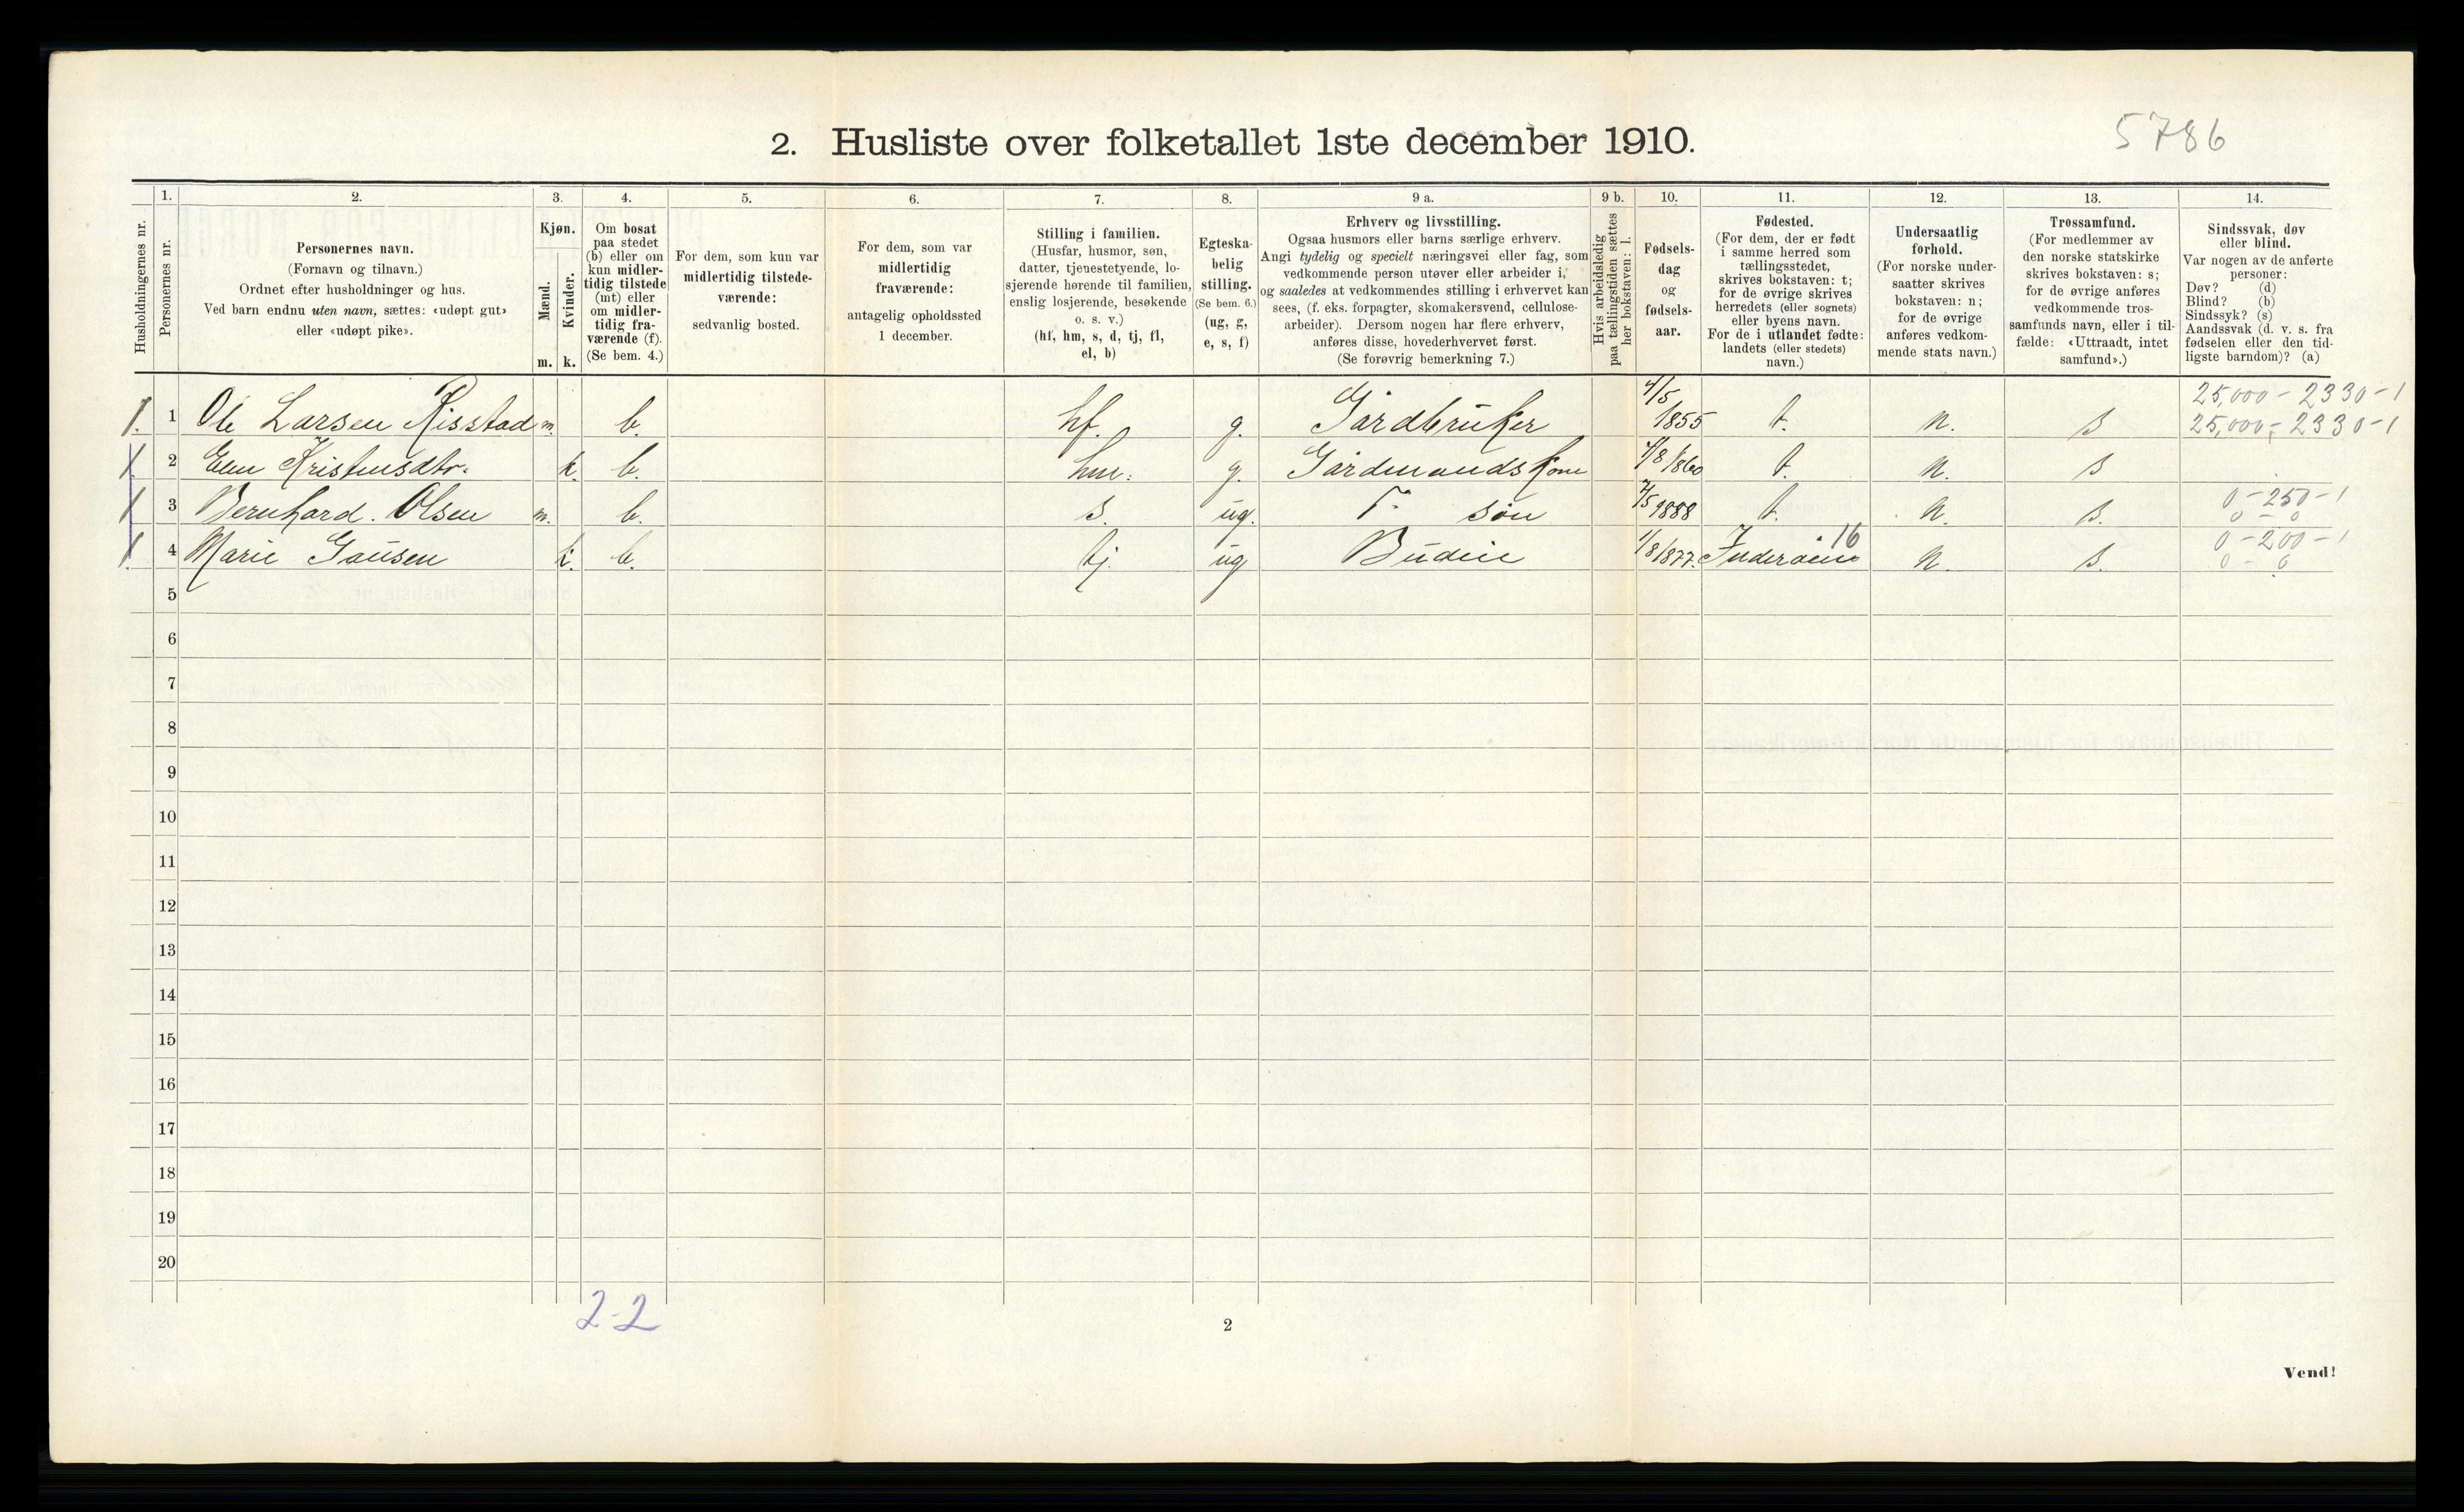 5786
2. Husliste over folketallet 1ste december 1910.
Husholdningernes nr.
1.
Personernes nr.
2.
Personernes navn.
(Fornavn og tilnavn.)
Ordnet efter husholdninger og hus.
Ved barn endnu uten navn, sættes: «udøpt gut»
eller «udøpt pike».
3.
Kjøn.
Mænd.
m.
Kvinder.
k.
4.
Om bosat
paa stedet
(b) eller om
kun midler-
tidig tilstede
(mt) eller
om midler-
tidig fra-
værende (f).
(Se bem. 4.)
5.
For dem, som kun var
midlertidig tilstede-
værende:
sedvanlig bosted.
6.
For dem, som var
midlertidig
fraværende:
antagelig opholdssted
1 december.
7.
Stilling i familien.
(Husfar, husmor, søn,
datter, tjenestetyende, lo-
sjerende hørende til familien,
enslig losjerende, besøkende
o. s. v.)
(hf, hm, s, d, tj, fl,
el, b)
8.
Egteska-
belig
stilling.
(Se bem. 6.)
(ug, g,
e, s, f)
9 a.
Erhverv og livsstilling.
Ogsaa husmors eller barns særlige erhverv.
Angi tydelig og specielt næringsvei eller fag, som
vedkommende person utøver eller arbeider i,
og saaledes at vedkommendes stilling i erhvervet kan
sees, (f. eks. forpagter, skomakersvend, cellulose-
arbeider). Dersom nogen har flere erhverv,
anføres disse, hovederhvervet først.
(Se forøvrig bemerkning 7.)
9 b.
Hvis arbeidsledig
paa tællingstiden sættes
her bokstaven: l.
10.
Fødsels-
dag
og
fødsels-
aar.
11.
Fødested.
(For dem, der er født
i samme herred som
tællingsstedet,
skrives bokstaven: t;
for de øvrige skrives
herredets (eller sognets)
eller byens navn.
For de i utlandet fødte:
landets (eller stedets)
navn.)
12.
Undersaatlig
forhold.
(For norske under-
saatter skrives
bokstaven: n;
for de øvrige
anføres vedkom-
mende stats navn.)
13.
Trossamfund.
(For medlemmer av
den norske statskirke
skrives bokstaven: s;
for de øvrige anføres
vedkommende tros-
samfunds navn, eller i til-
fælde: «Uttraadt, intet
samfund».)
14.
Sindssvak, døv
eller blind.
Var nogen av de anførte
personer:
Døv? (d)
Blind? (b)
Sindssyk? (s)
Aandssvak (d. v. s. fra
fødselen eller den tid-
ligste barndom)? (a)
25,000 - 2330 - 1
1. 1 Ole Larsen Risstad m. b. hf. g. Gårdbruker 4/5 1855 t. n. s 25,000 - 2330 - 1
1 2 Elen Kristensdtr. k. b. hm. g. Gårdmandskone 4/8 1860 t. n. s
0 - 250 - 1
1 3 Bernhard. Olsen m. b. s. ug. søn 1888 t. n. s. 0 - 0
16 0 - 200 - 1
1 4 Marie k. b. tj. ug Budeie 1/8 1877. Inderøen n. s. 0 - 0
5
6
7
8
9
10
11
12
13
14
15
16
17
18
19
20
2-2
2
Vend!